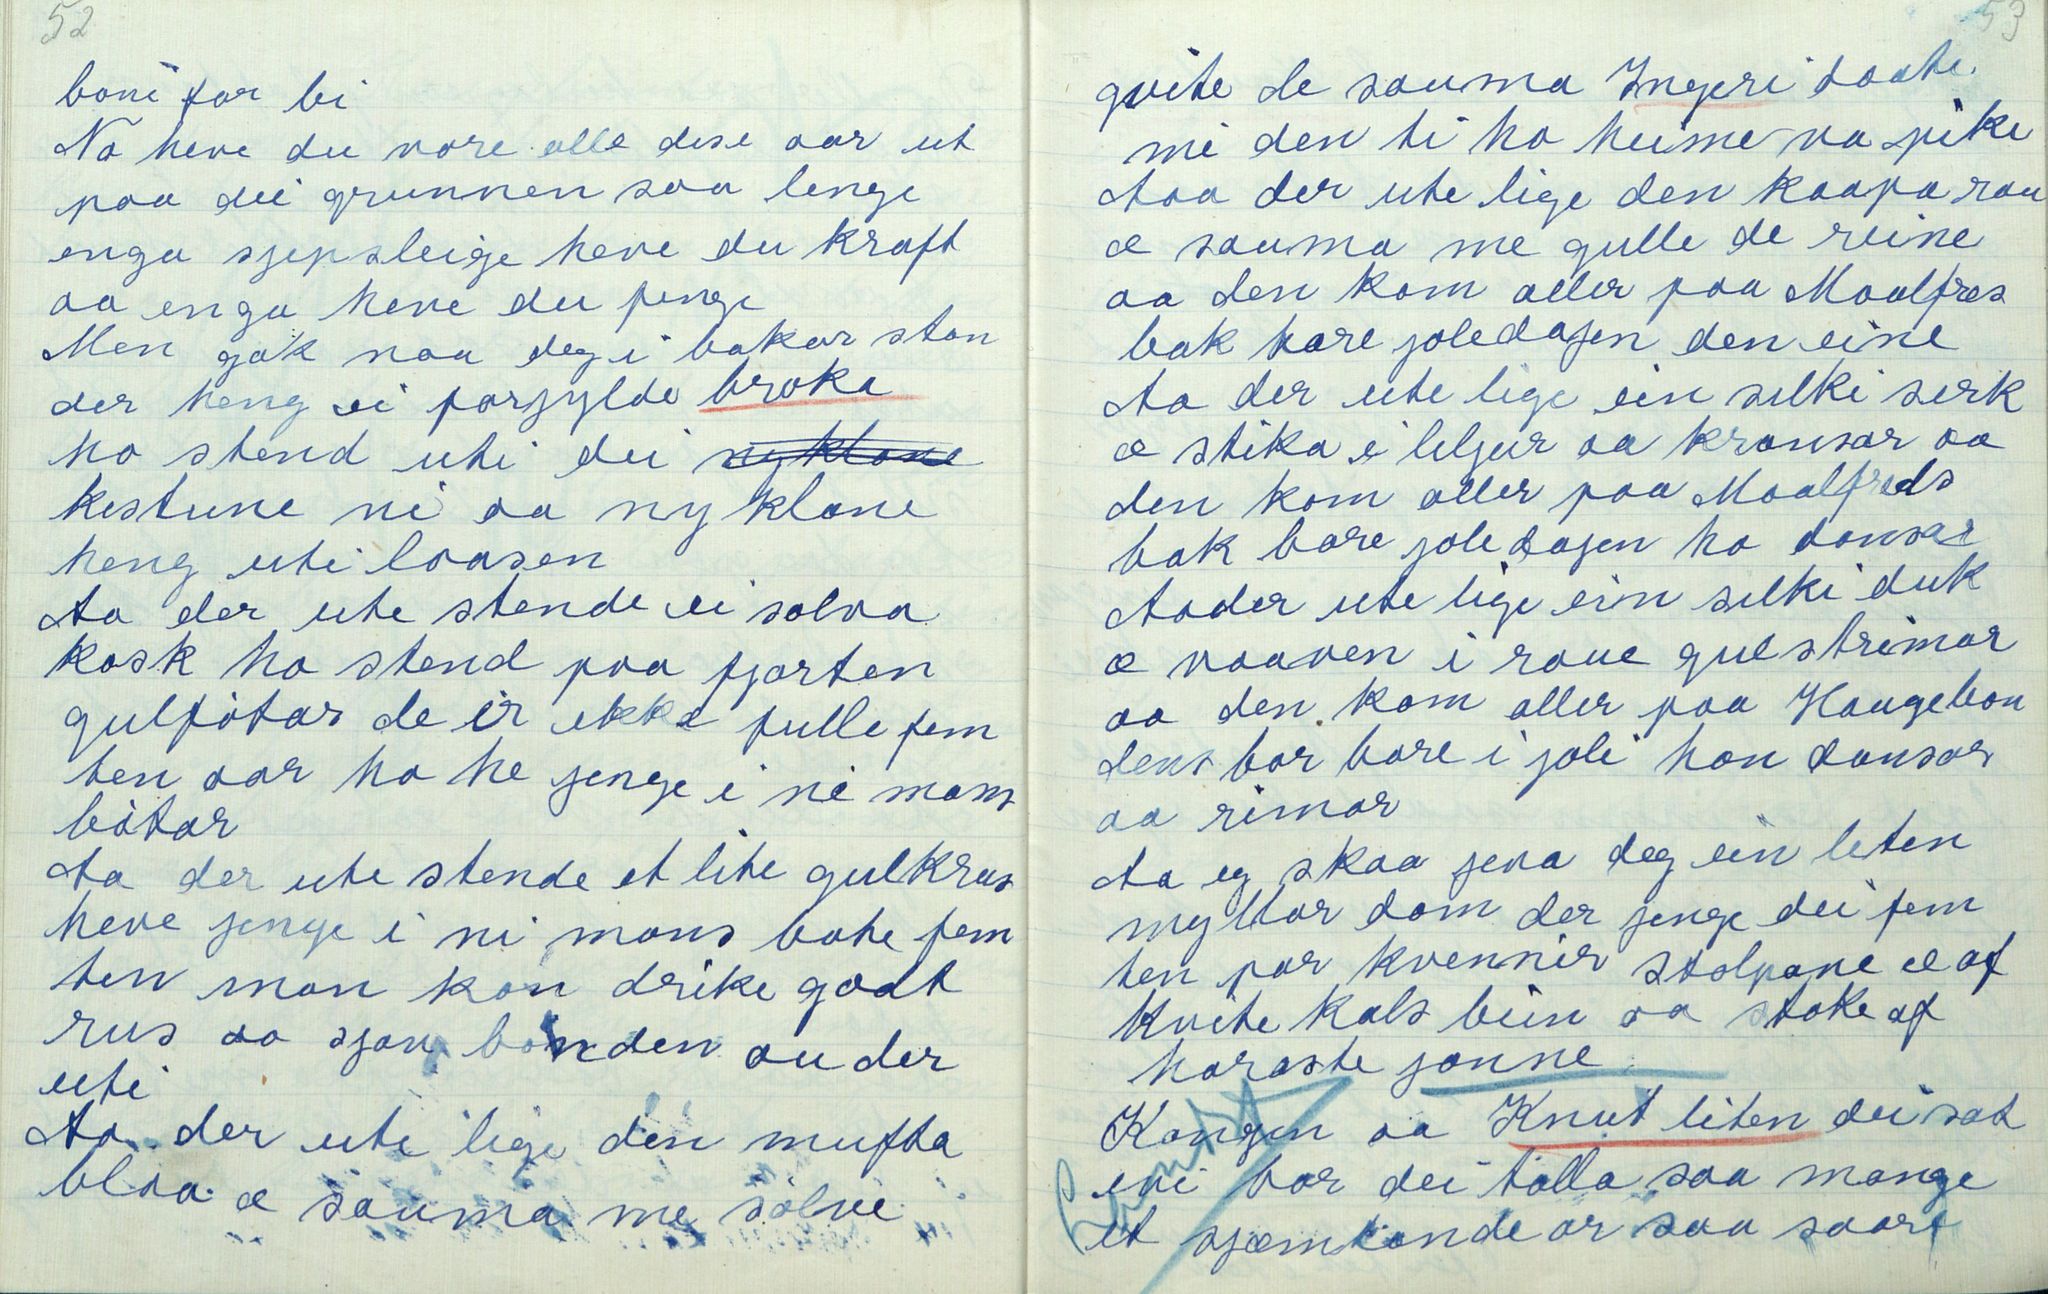 52
boni for bi
No heve du vore alle dese aar ut
paa dei grunnen saa lenge
enga sjepsleige heve du kraft
aa enga heve du penge
Men gak naa deg i bakar ston
der heng ei forjylde broka
ho stend uti dei nyklane
kestune ni aa nyklane
heng uti laasen
Aa der ute stende ei solva
kosk ho stend paa fjorten
gulfòtar de ir ekke fulle fem
ten aar ho he jenge i ni mans
bòtar
Aa der ute stende et lite gulkrus
heve jenge i ni mans bote fem
ten man kan drike godt
rus aa sjøv bonden au der
uti
Aa der ute lige den mufta
blaa æ sauma me sòlve
53
qvite de sauma Ingeri taate
mi den ti ho heime va pike
Aaa der ute lige den kaapa rau
æ sauma me gulle de reine
aa den kom aller paa Maalfres
bak bare joledajen den eine
Aa der ute lige ein silki serk
æ stika i liljur aa kransar aa
den kom aller paa Maalfreds
bak bare joledajen ho dansar
Aader ute lige ein silki duk
æ vaaven i raue gulstrimar
aa den kom aller paa Haugebon
dens bor bare i joli han dansar
aa rimar
Aa eg skaa jeva deg ein liten
myllar dom der jenge dei fem
ten par kvennir stolpane æ af
kvite kals bein aa stoke af
haraste jonne
Kongen aa Knut liten dei sat
evi bor dei talla saa mange
et sjæmtande or saa saart